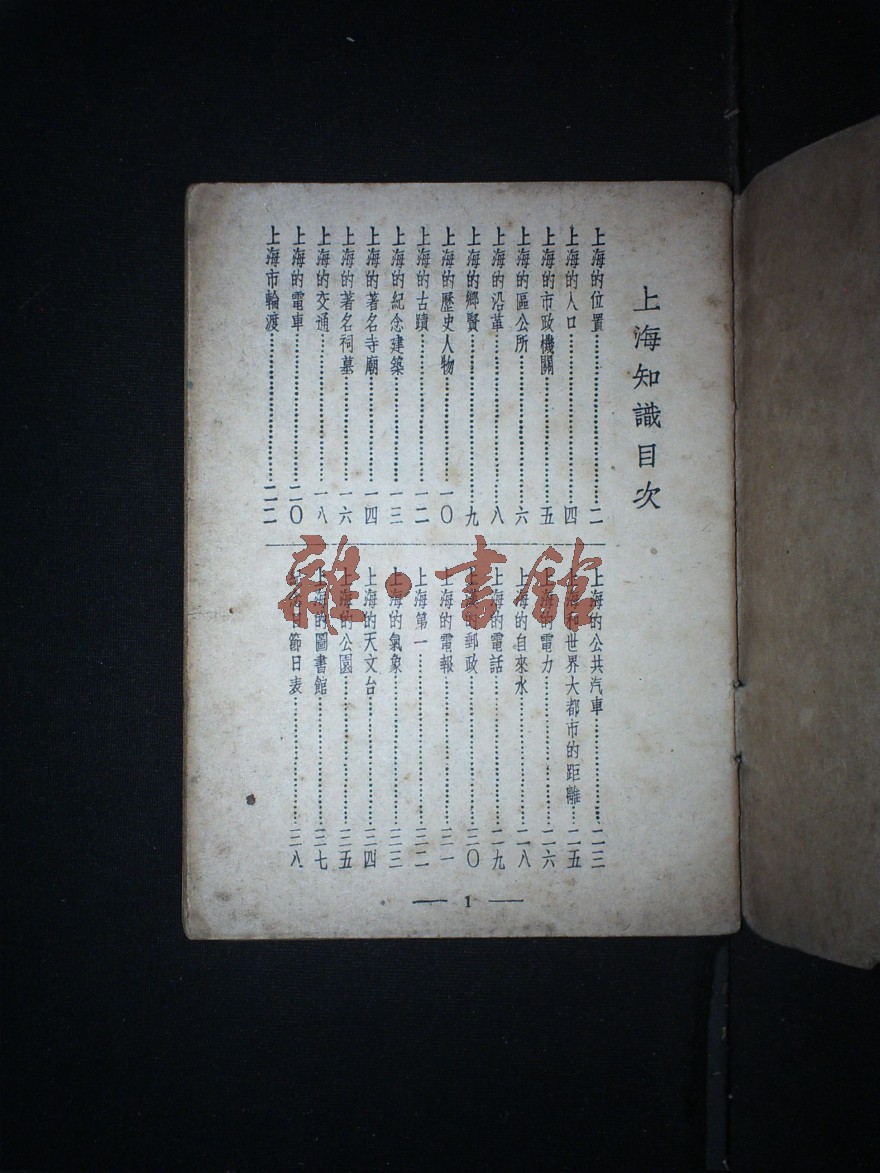 上海知識目次
上海的位置……二
上海的人口……四
上海的市政機關……五
上海的區公所……六
上海的沿革……八
上海的鄉賢……九
上海的歷史人物……一〇
上海的古蹟……一二
上海的紀念建築……一三
上海的著名寺廟……一四
上海的著名祠墓……一六
上海的交通……一八
上海的電車……二〇
上海市輪渡……二二
上海的公共汽車……二三
上海和世界大都市的距離……二五
上海的電力……二六
上海的自來水……二八
上海的電話……二九
上海的郵政……三〇
上海的電報……三一
上海第一……三二
上海的氣象……三三
上海的天文台……三四
上海的公園……三五
上海的圖書館……三七
節日表……三八
— 1 —
雜·書館